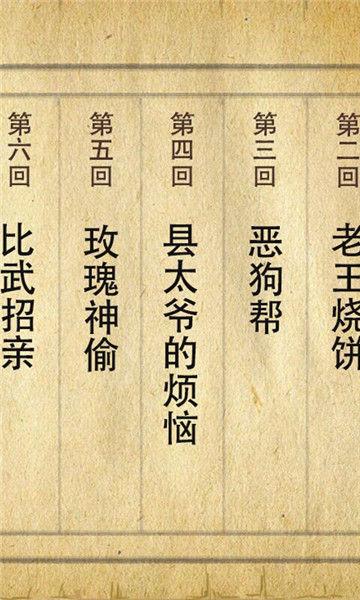 第二回
老王烧饼
第三回
恶狗帮
第四回
县太爷的烦恼
第五回
玫瑰神偷
第六回
比武招亲